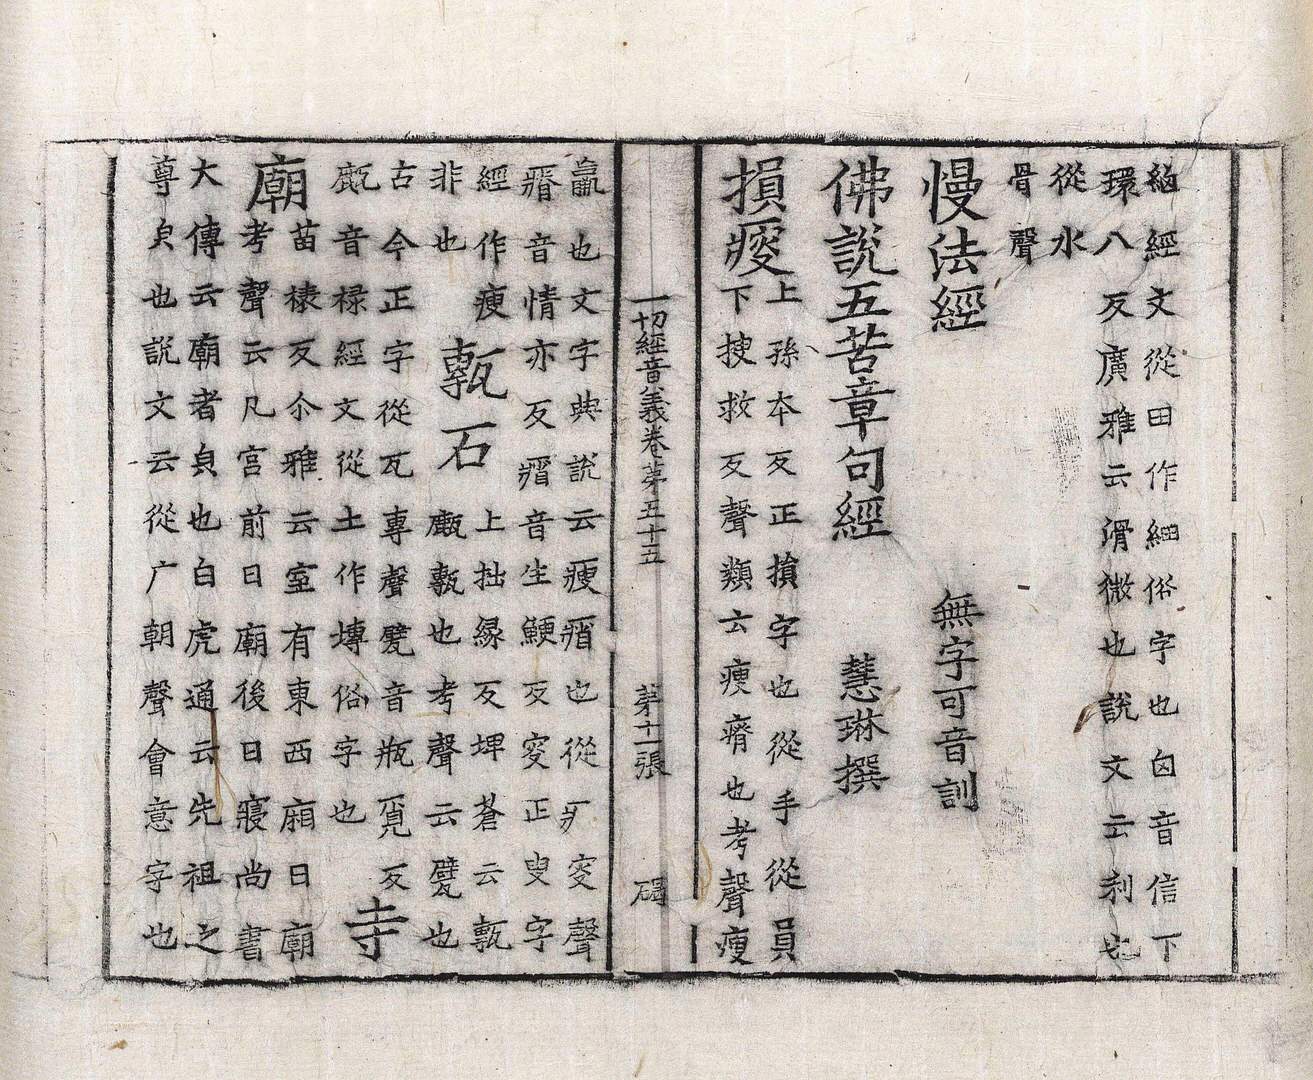 經文從田作細俗字也囟音信下
環八反廣雅云滑微也說文云利也
從水
骨聲
慢法經 無字可音訓
佛說五苦章句經 慧琳撰
損瘦 上孫本反正損字也從手從員
下搜救反聲類云瘦瘠也考聲瘦
一切經音義卷苐五十五 苐十一張 碣
羸也文字典說云瘦㾪也從疒叜聲
㾪音情亦反㾪音生鯁反叜正叟字
經作瘦 甎石 上拙緣反埤蒼云甎
非也 㼾甎也考聲云甓也
古今正字從瓦專聲甓音瓶覓反 寺
㼾音祿經文從土作塼俗字也
廟 苗棣反尒雅云室有東西廂曰廟
考聲云凡宮前曰廟後曰寢尚書
大傳云廟者皃也白虎通云先祖之
尊皃也說文云從广朝聲會意字也